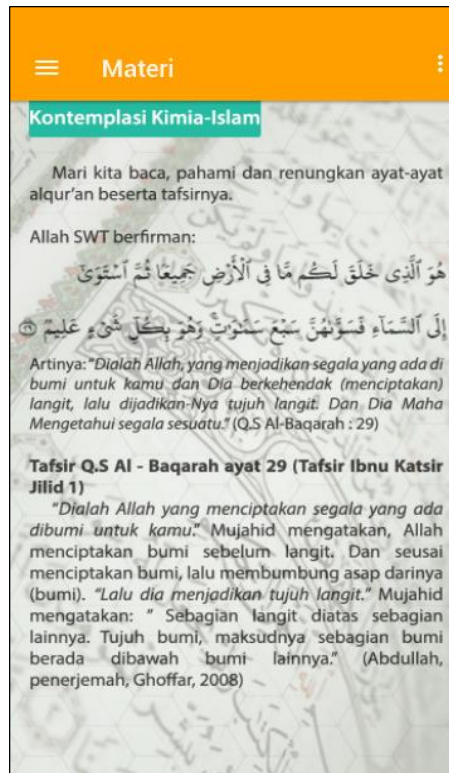 Materi
Kontemplasi Kimia-Islam
Mari kita baca, pahami dan renungkan ayat-ayat
alqur'an beserta tafsirnya.
Allah SWT berfirman:
هُوَ ٱلَّذِى خَلَقَ لَكُم مَّا فِى ٱلْأَرْضِ جَمِيعًا ثُمَّ ٱسْتَوَىٰٓ
إِلَى ٱلسَّمَآءِ فَسَوَّىٰهُنَّ سَبْعَ سَمَٰوَٰتٍۚ وَهُوَ بِكُلِّ شَىْءٍ عَلِيمٌ ٢٩
Artinya: "Dialah Allah, yang menjadikan segala yang ada di
bumi untuk kamu dan Dia berkehendak (menciptakan)
langit, lalu dijadikan-Nya tujuh langit. Dan Dia Maha
Mengetahui segala sesuatu." (Q.S Al-Baqarah : 29)
Tafsir Q.S Al - Baqarah ayat 29 (Tafsir Ibnu Katsir
Jilid 1)
"Dialah Allah yang menciptakan segala yang ada
dibumi untuk kamu." Mujahid mengatakan, Allah
menciptakan bumi sebelum langit. Dan seusai
menciptakan bumi, lalu membumbung asap darinya
(bumi). "Lalu dia menjadikan tujuh langit." Mujahid
mengatakan: " Sebagian langit diatas sebagian
lainnya. Tujuh bumi, maksudnya sebagian bumi
berada dibawah bumi lainnya." (Abdullah,
penerjemah, Ghoffar, 2008)